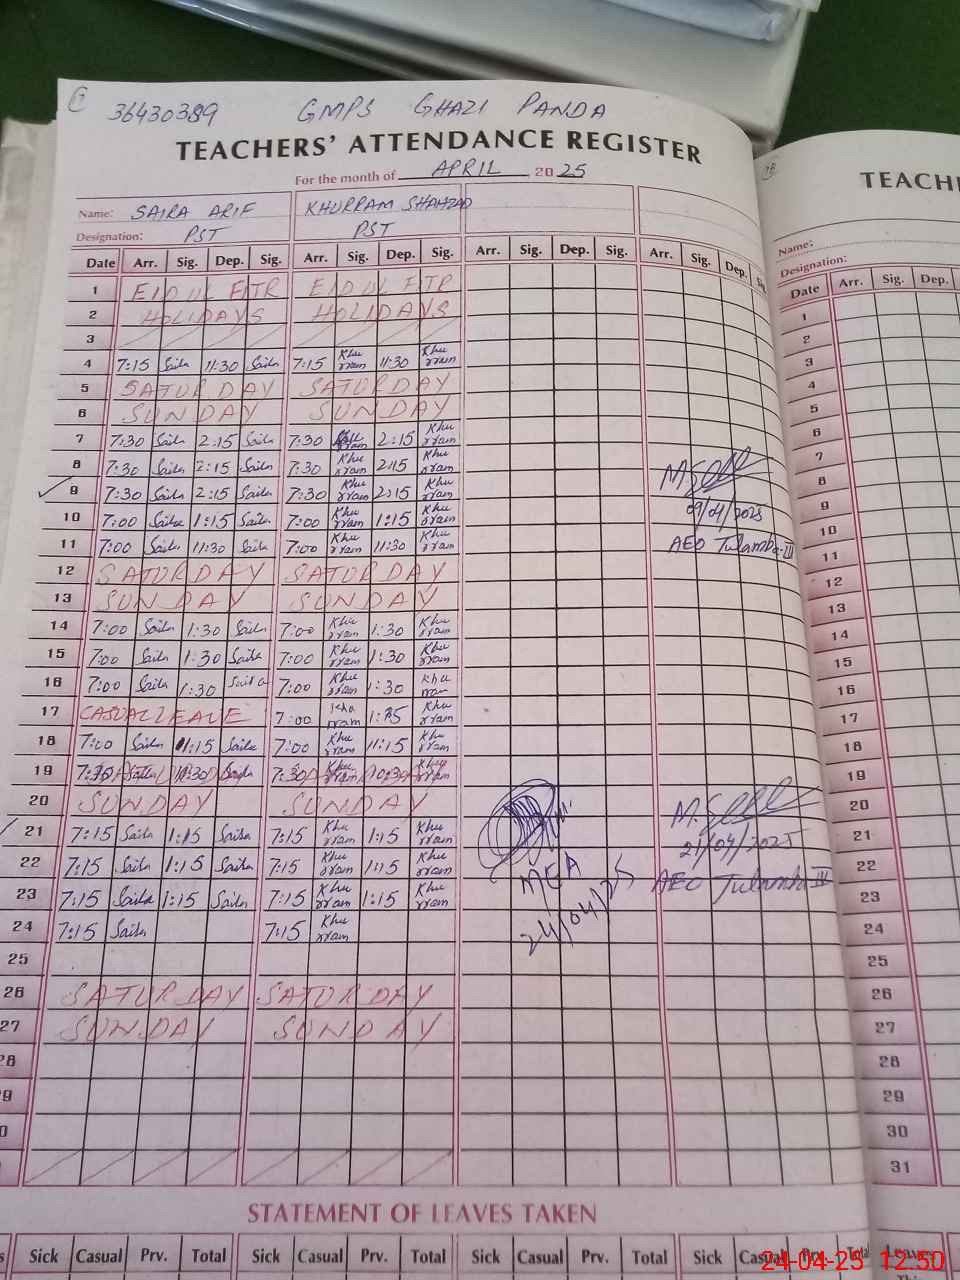 7 36430389 GMPS GHAZI PANDA
TEACHERS' ATTENDANCE REGISTER
For the month of APRIL 2025
Name: SAIRA ARIF KHURRAM SHAHZAD
Designation: PST PST
Date Arr. Sig. Dep. Sig. Arr. Sig. Dep. Sig. Arr. Sig. Dep. Sig. Arr. Sig. Dep.
1 EID UL FITR EID UL FITR
2 HOLIDAYS HOLIDAYS
3
4 7:15 Saila 11:30 Saila 7:15 Khurram 11:30 Khurram
5 SATURDAY SATURDAY
6 SUNDAY SUNDAY
7 7:30 Saila 2:15 Saila 7:30 Khurram 2:15 Khurram
8 7:30 Saila 2:15 Saila 7:30 Khurram 2:15 Khurram
9 7:30 Saila 2:15 Saila 7:30 Khurram 2:15 Khurram
09/04/2025
10 7:00 Saila 1:15 Saila 7:00 Khurram 1:15 Khurram
11 7:00 Saila 11:30 Saila 7:00 Khurram 11:30 Khurram AEO Tulamba-III
12 SATURDAY SATURDAY
13 SUNDAY SUNDAY
14 7:00 Saila 1:30 Saila 7:00 Khurram 1:30 Khurram
15 7:00 Saila 1:30 Saila 7:00 Khurram 1:30 Khurram
16 7:00 Saila 1:30 Saila 7:00 Khurram 1:30 Khurram
17 CASUAL LEAVE 7:00 Khurram Khurram
18 7:00 Saila 11:15 Saila 7:00 Khurram 11:15 Khurram
19
20 SUNDAY SUNDAY
21 7:15 Saila 1:15 Saila 7:15 Khurram 1:15 Khurram
21/04/2025
22 7:15 Saila 1:15 Saila 7:15 Khurram 1:15 Khurram MEA AEO Tulamba III
23 7:15 Saila 1:15 Saila 7:15 Khurram 1:15 Khurram
24/04/25
24 7:15 Saila 7:15 Khurram
25
26 SATURDAY SATURDAY
27 SUNDAY SUNDAY
28
29
STATEMENT OF LEAVES TAKEN
Sick Casual Prv. Total Sick Casual Prv. Total Sick Casual Prv. Total Sick Casual Prv. Total
TEACH
Name:
Designation:
Date Arr. Sig. Dep.
1
2
3
4
5
6
7
8
9
10
11
12
13
14
15
16
17
18
19
20
21
22
23
24
25
26
27
28
29
30
31
24-04-25 12:50